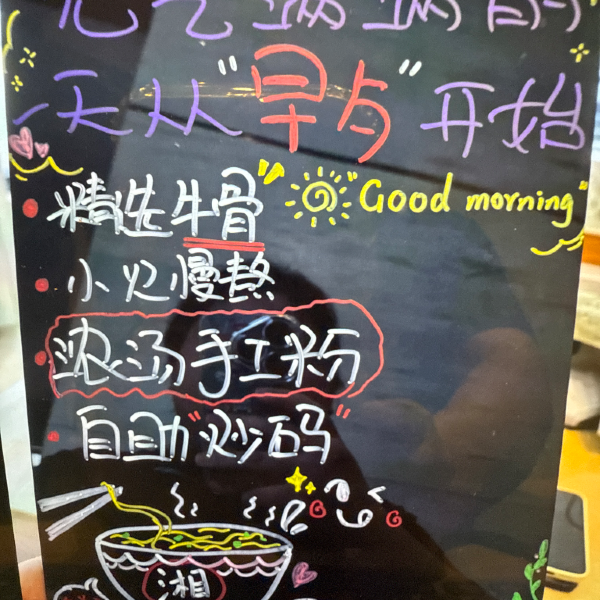 元气满满的
一天从"早点"开始
精选牛骨
"Good morning"
小火慢熬
浓汤手工粉
自助"炒码"
湘